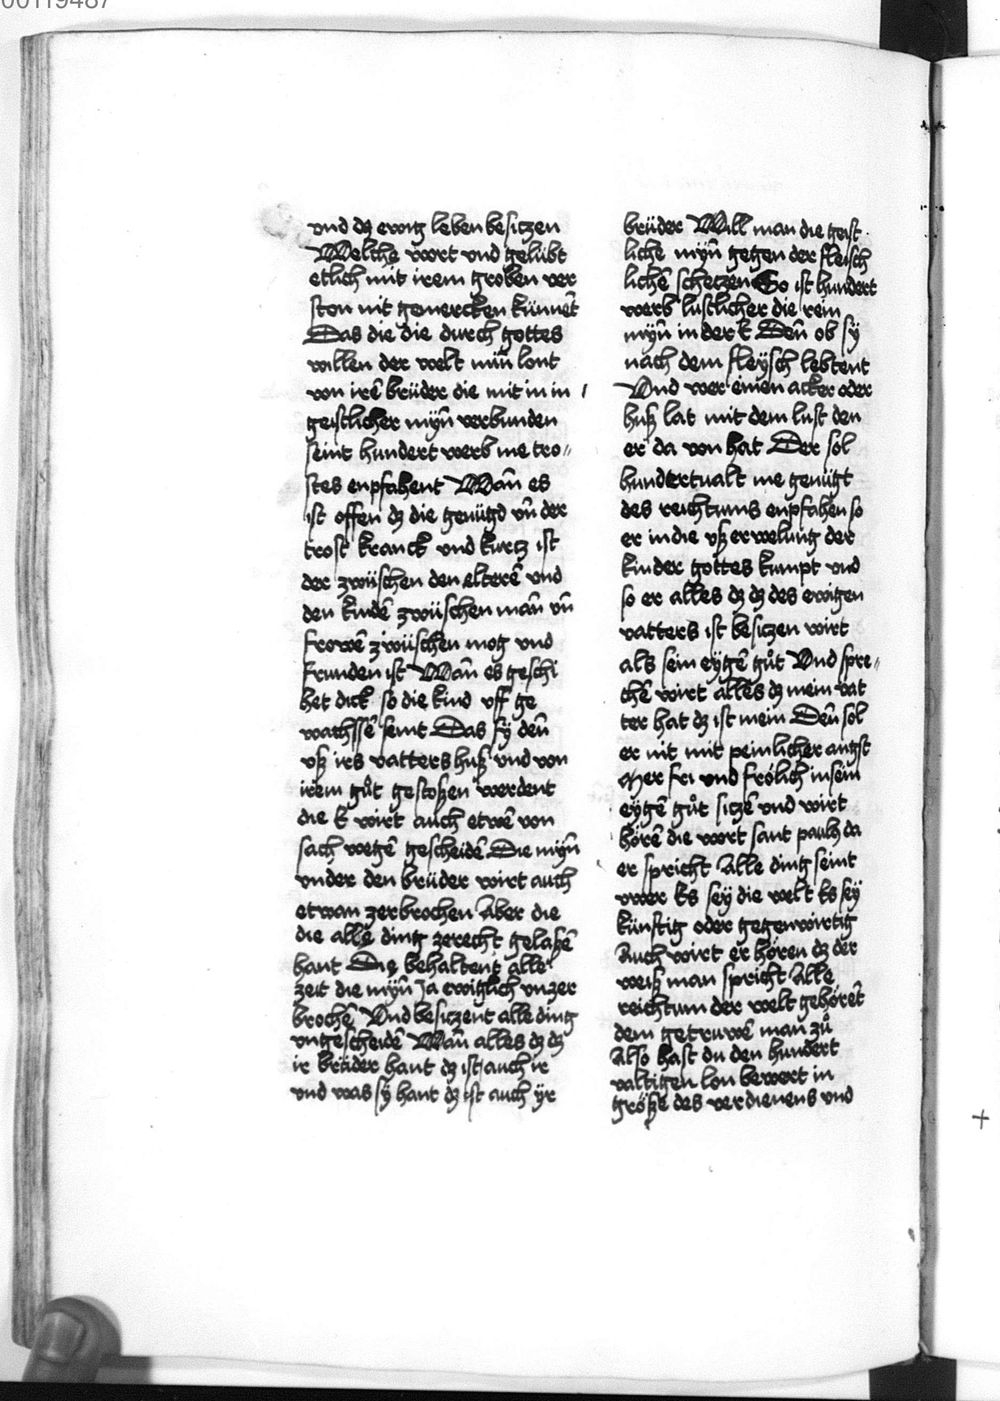 00119487
vnd dz ewig leben besitzen
Welche wort vnd gelübt
etlich mit irem groben ver
ston nit gemercken künnēt
Das die die durch gottes
willen der welt miñ lont
von irē brüder die mit in in
geistlicher mÿñ verbunden
seint hundert werb me tro〃
stes enpfahent Wañ es
ist offen dz die genügd vñ der
trost kranck vnd kurcz ist
der zwüschen den elterē vnd
den kindē zwüschen mañ vñ
frowē zwüschen mog vnd
frunden ist Wañ es geschi
het dick so die kind vff ge
wachssē seint Das sÿ deñ
vß irs vatters huß vnd von
irem gůt gestoßen werdent
die E wirt auch etwē von
sach wegē gescheidē Die mÿñ
vnder den brüder wirt auch
etwan zerbrochen Aber die
die alle ding zerecht gelaßē
hant Die behaltent alle
zeit die mÿñ Ja ewiglich vnzer
brochē Vnd besiczent alle ding
vngescheidē Wañ alles dz dz
ir brüder hant dz ist auch ir
vnd was sÿ hant dz ist auch ÿr
brüder Will man die geist
liche mÿñ gegen der fleisch
lichē scheczen So ist hundert
werb lustlicher die rein
mÿñ in der E Deñ ob sÿ
nach dem fleÿsch lebtent
Vnd wer einen acker oder
huß lat mit dem lust den
er da von hat Der sol
hundertualt me genügt
des reichtums enpfahen so
er in die vß erwelung der
kinder gottes kumpt vnd
so er alles dz dz des ewigen
vatters ist besiczen wirt
als sein eÿgē gůt Vnd spre〃
chē wirt alles dz mein vat
ter hat dz ist mein Deñ sol
er nit mit peinlicher angst
Mer fri vnd frölich in sein
eÿgē gůt siczē vnd wirt
hörē die wort sant pauls da
er spricht Alle ding seint
vwer Es seÿ die welt Es seÿ
künftig oder gegenwirtig
Auch wirt er hören dz der
weiß man spricht Alle
reichtum der welt gehörēt
dem getruwē man zů
Also hast du den hundert
valtigen lon bewert in
größe des verdienens vnd